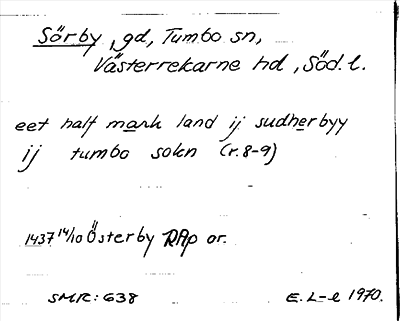 Sörby, gd, Tumbo sn,
Västerrekarne hd, Söd. l.
eet half mark land ij sudherbyy
ij tumbo sokn (r. 8-9)
1437 14/10 Österby RAp or.
SMR: 638 E. L-l 1970.